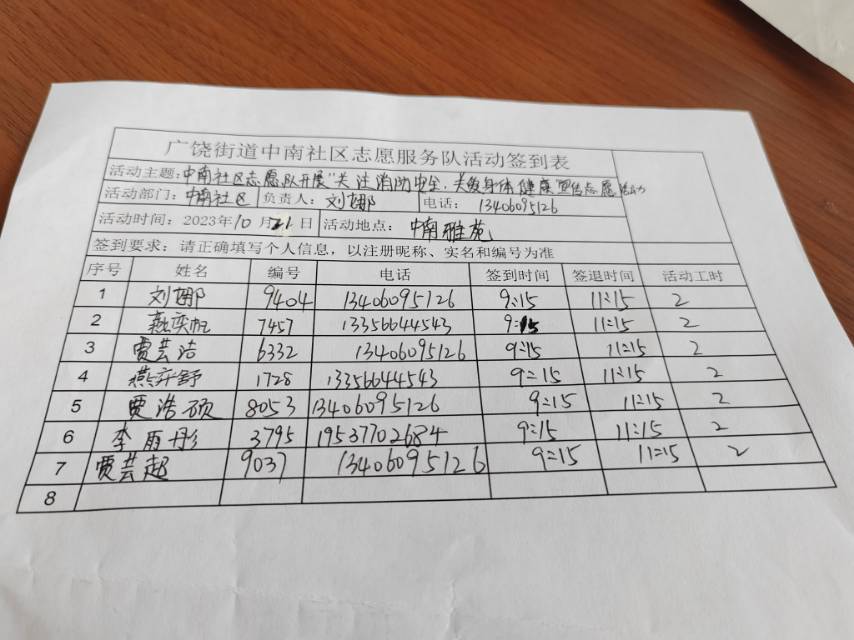 广饶街道中南社区志愿服务队活动签到表
活动主题：中南社区志愿队开展"关注消防安全，关爱身体健康"宣传志愿活动
活动部门：中南社区 负责人：刘娜 电话：13406095126
活动时间：2023年10月21日 活动地点：中南雅苑
签到要求：请正确填写个人信息，以注册昵称、实名和编号为准
序号 姓名 编号 电话 签到时间 签退时间 活动工时
1 刘娜 9404 13406095126 9:15 11:15 2
2 燕奕帆 7457 13356644543 9:15 11:15 2
3 贾芸洁 6332 13406095126 9:15 11:15 2
4 燕弈舒 1728 13356644543 9:15 11:15 2
5 贾浩硕 8053 13406095126 9:15 11:15 2
6 李丽彤 3795 19537702684 9:15 11:15 2
7 贾芸起 9037 13406095126 9:15 11:15 2
8